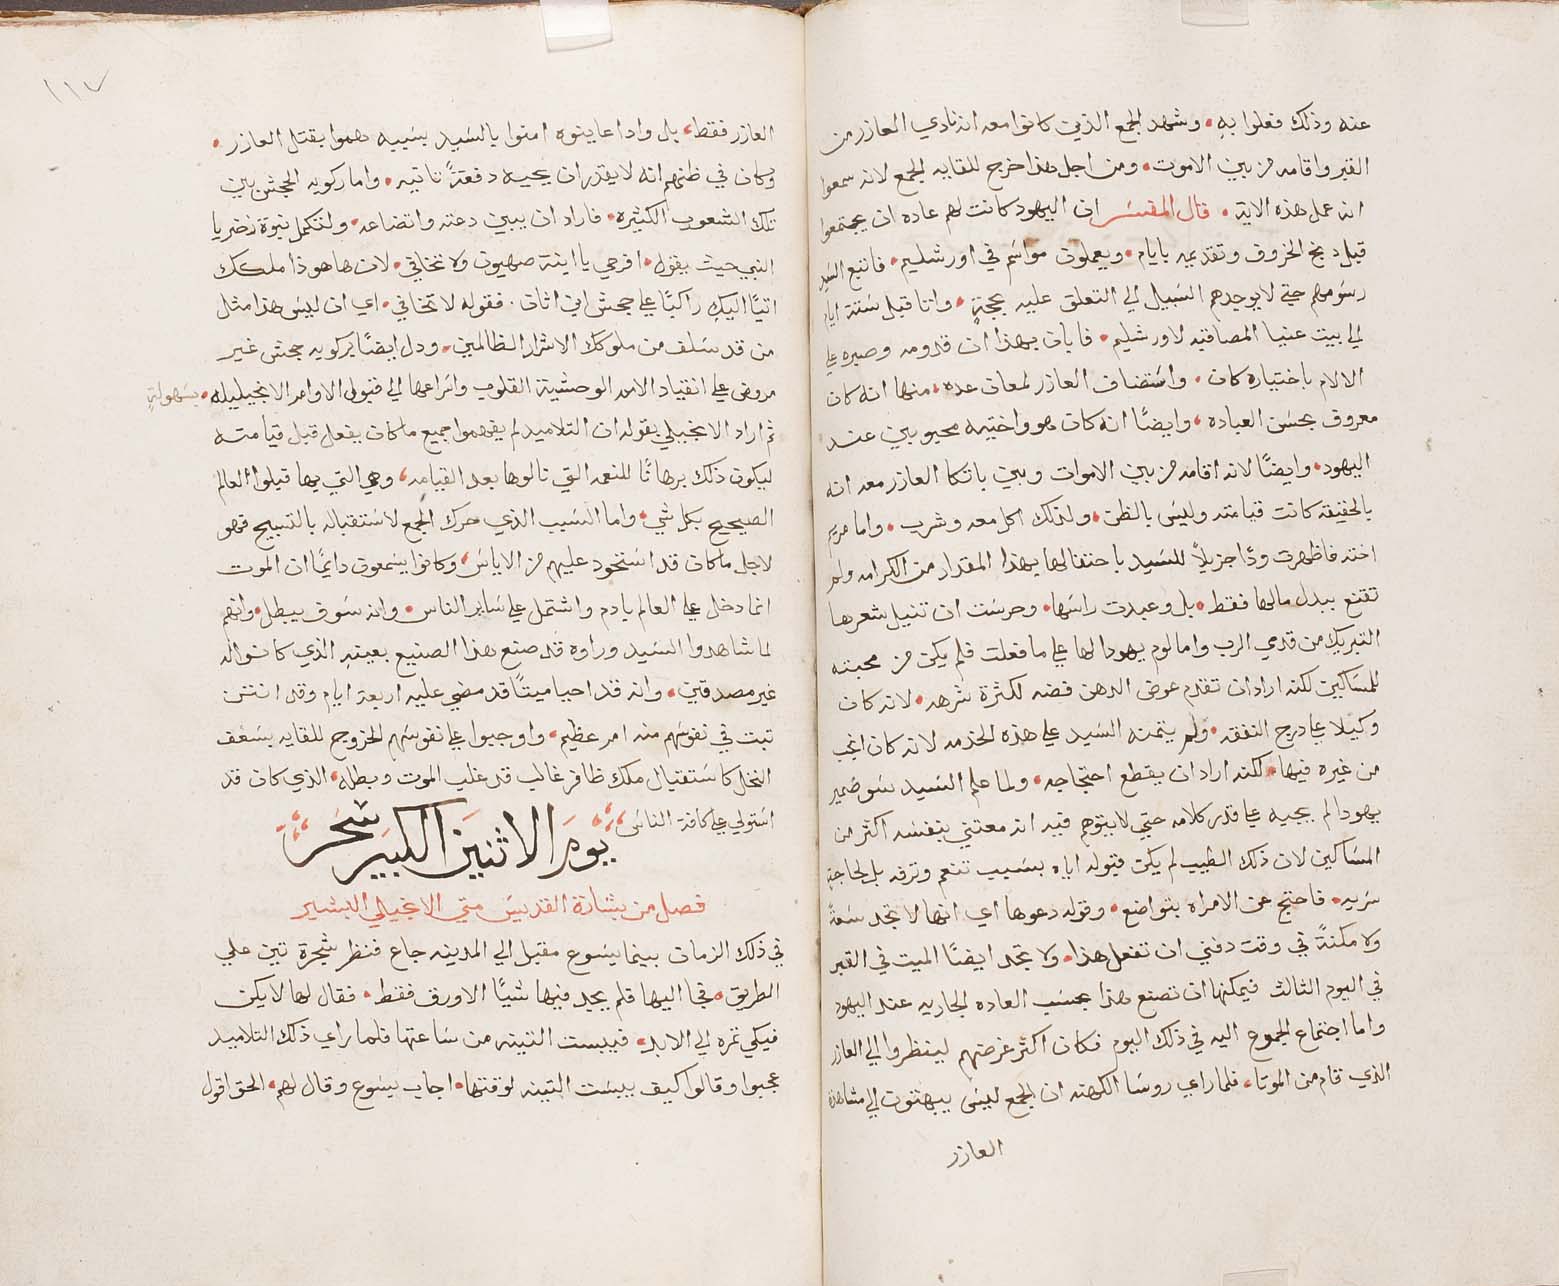 عنه وذلك فعلوا به، وشهد الجمع الذين كانوا معه انه نادي العازر من
القبر واقامه من بين الاموت، ومن اجل هذا خرج للقايه الجمع لانه سمعوا
انه عمل هذه الاية، قال المفسر ان اليهود كانت لهم عاده ان يجتمعوا
قبل دبح الخروف وتقديمه بايام، ويعملون مواسم في اورشليم، فاتبع السيد
رسومهم حتي لا يوجدهم السبيل الي التعلق عليه بحجةٍ، واتا قبل ستة ايام
الي بيت عنيا المصاقبه لاورشليم، فابان بهذا ان قدومه وصيره علي
الالام باختياره كان، واستضاف العازر لمعان عده، منها انه كان
معروف بحسن العباده، وايضًا انه كان هو واختيه محبوبين عند
اليهود، وايضًا لانه اقامه من بين الاموات وبين باتكا العازر معه انه
بالحقيقه كانت قيامته وليس بالظن، ولذلك اكل معه وشرب، واما مريم
اخته فاظهرت ودًا جزيلاً للسيد باحتفالها بهذا المقدار من الكرامه ولم
تقنع ببدل مالها فقط، بل وعبدت راسها، وحرست ان تنيل شعرها
التبريك من قدمي الرب واما لوم يهودا لها علي ما فعلت فلم يكن من محبته
للمساكين لكنه اراد ان تقدم عوض الدهن فضه لكثرة شرهه، لانه كان
وكيلا علي درج النفقه، ولم يتمنه السيد علي هذه الخدمه لانه كان انجب
من غيره فيها، لكنه اراد ان يقطع احتجاجه، ولما علم السيد سو ضمير
يهودا لم يجيبه علي قدر كلامه حتي لا يتوهم فيه انه معتني بنفسه اكثر من
المساكين لان ذلك الطيب لم يكن قبوله اياه بسبب تنعم وترفه بل لحاجةٍ
سريه، فاحتج عن الامراه بتواضع، وقوله دعوها اي انها لا تجد سعةً
ولا مكنةً في وقت دفني ان تفعل هذا، ولا تجد ايضًا الميت في القبر
في اليوم الثالث فيمكنها ان تصنع هذا بحسب العاده الجاريه عند اليهود
واما اجتماع الجموع اليه في ذلك اليوم فكان اكثر غرضهم لينظروا الي العازر
الذي قام من الموتا، فلما راي روسا الكهنه ان الجمع ليس يبهتون الي مشاهدة
العازر
١١٧
العازر فقط، بل وادا عاينوه امنوا بالسيد بسببه هموا بقتل العازر،
وكان في ظنهم انه لا يقدر ان يحييه دفعةً تانيه، واما ركوبه الجحش بين
تلك الشعوب الكثيره، فاراد ان يبين دعته واتضاعه، ولتكمل نبوة زخريا
النبي حيث يقول، افرحي يا ابنة صهيون ولا تخافي، لان هاهوذا ملكك
اتيًا اليكِ راكبًا علي جحش ابن اتان، فقوله لا تخافي، اي ان ليس هذا مثل
من قد سلف من ملوكك الاشرار الظالمين، ودل ايضًا بركوبه جحش غير
مروض علي انقياد الامم الوحشية القلوب واسراعها الي قبول الاوامر الانجيليله، بسهولةٍ
ثم اراد الانجيلي بقوله ان التلاميد لم يفهموا جميع ما كان يفعل قبل قيامته
ليكون ذلك برهانًا للنعمه التي نالوها بعد القيامه، وهي التي بها قبلوا العالم
الصحيح بكل شي، واما السبب الذي حرك الجمع لاستقباله بالتسبيح فهو
لاجل ما كان قد استحود عليهم من الاياس، وكانوا يسمعون دايمًا ان الموت
انما دخل علي العالم بادم واشتمل علي ساير الناس، وانه سوف يبطل، وانهم
لما شاهدوا السيد وراوه قد صنع هذا الصنيع بعينهِ الذي كانوا له
غير مصدقين، وانه قد احيا ميتًا قد مضي عليه اربعة ايام وقد انتن
تبت في نفوسهم منه امر عظيم، واوجبوا علي نفوسهم الخروج للقايه بسعف
النخل كاستقبال ملك ظافر غالب قد غلب الموت وبطله، الذي كان قد
استولي علي كافة الناس
يوم الاثنين الكبير سَحَر
فصل من بشارة القديس متي الانجيلي البشير
في ذلك الزمان بينما يسوع مقبل الي المدينه جاع فنظر شجرة تين علي
الطريق، فجا اليها فلم يجد فيها شيًا الا ورق فقط، فقال لها لا يكن
فيكي تمره الي الابد، فيبست التينه من ساعتها فلما راي ذلك التلاميد
عجبوا وقالوا كيف يبست التينه لوقتها، اجاب يسوع وقال لهم، الحق اقول